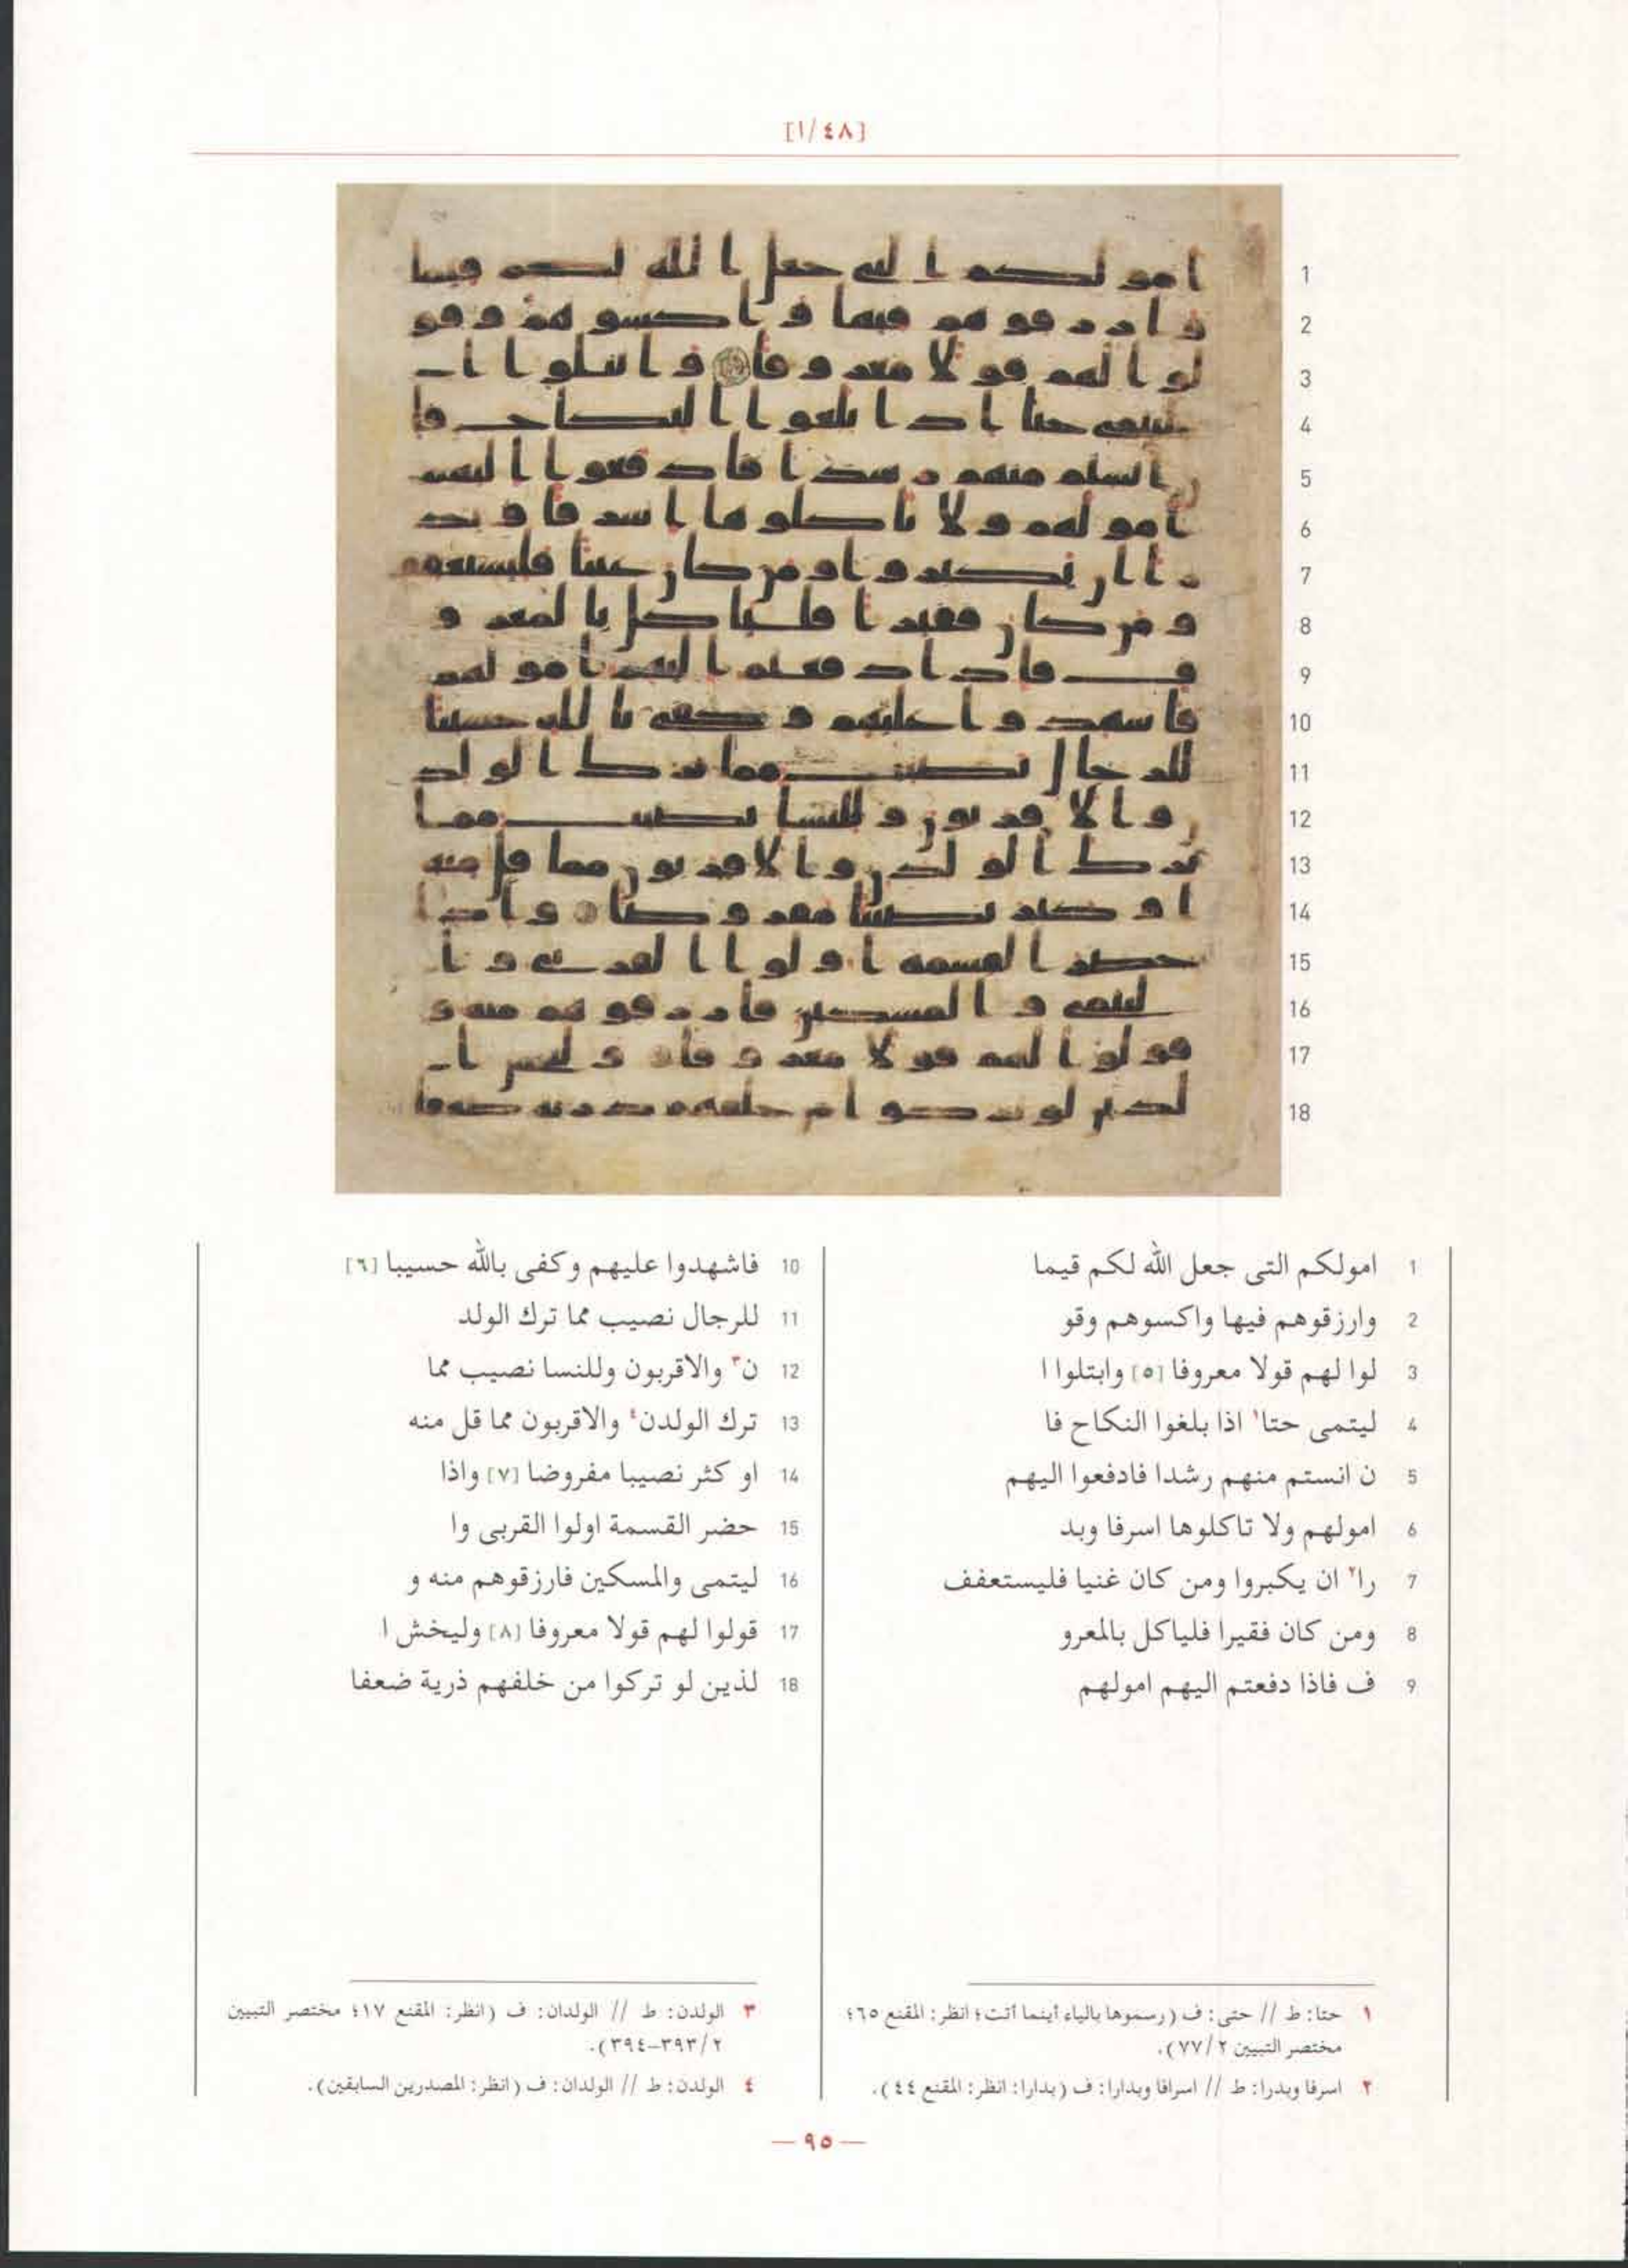 [٤٨/١]
1 امولكم التى جعل الله لكم قيما
2 وارزقوهم فيها واكسوهم وقو
3 لوا لهم قولا معروفا [٥] وابتلوا ا
4 ليتمى حتا١ اذا بلغوا النكاح فا
5 ن انستم منهم رشدا فادفعوا اليهم
6 امولهم ولا تاكلوها اسرفا وبد
7 را٢ ان يكبروا ومن كان غنيا فليستعفف
8 ومن كان فقيرا فلياكل بالمعرو
9 ف فاذا دفعتم اليهم امولهم
10 فاشهدوا عليهم وكفى بالله حسيبا [٦]
11 للرجال نصيب مما ترك الولد
12 ن٣ والاقربون وللنسا نصيب مما
13 ترك الولدن٤ والاقربون مما قل منه
14 او كثر نصيبا مفروضا [٧] واذا
15 حضر القسمة اولوا القربى وا
16 ليتمى والمسكين فارزقوهم منه و
17 قولوا لهم قولا معروفا [٨] وليخش ا
18 لذين لو تركوا من خلفهم ذرية ضعفا
١ حتا: ط // حتى: ف (رسموها بالياء أينما أتت؛ انظر: المقنع ٦٥؛
مختصر التبيين ٧٧/٢).
٢ اسرفا وبدرا: ط // اسرافا وبدارا: ف (بدارا: انظر: المقنع ٤٤).
٣ الولدن: ط // الولدان: ف (انظر: المقنع ١٧؛ مختصر التبيين
٣٩٣/٢–٣٩٤).
٤ الولدن: ط // الولدان: ف (انظر: المصدرين السابقين).
— ٩٥ —